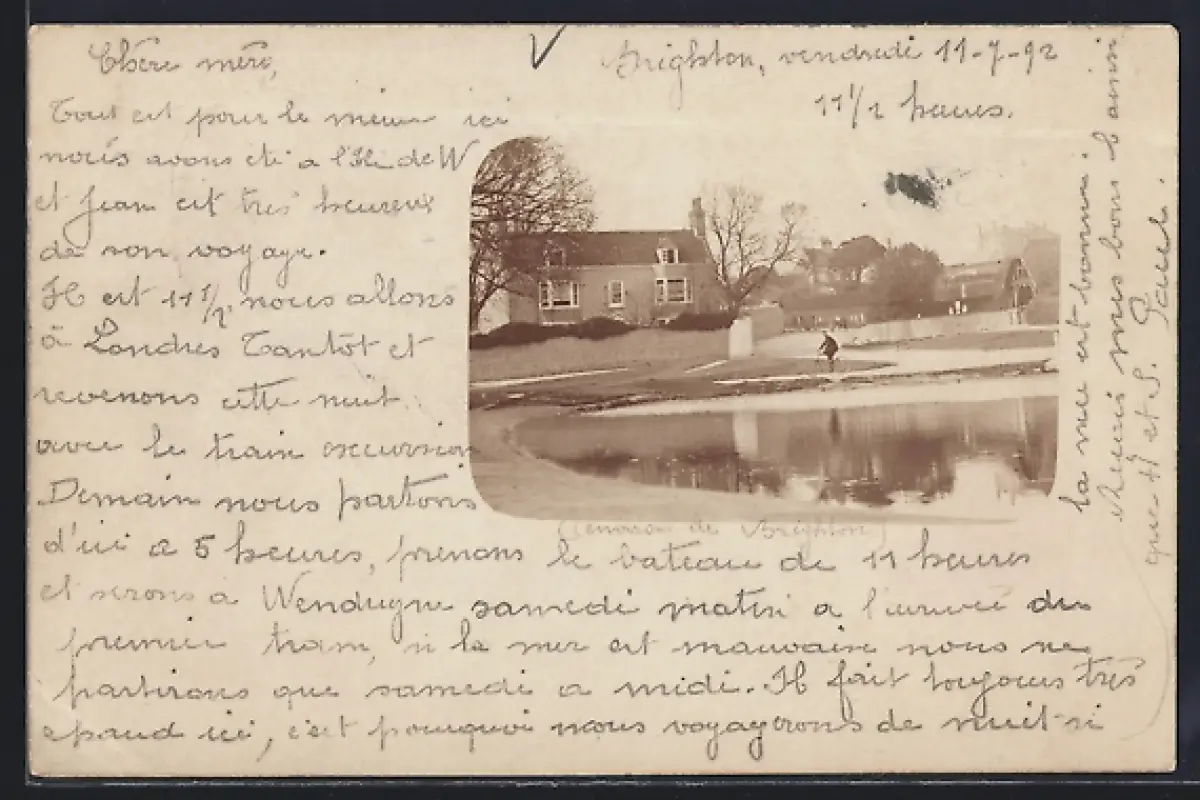 Brighton, vendredi 11-7-92
11 1/2 heures.
Chère mère,
Tout est pour le mieux ici
nous avons été a l'Ile de W
et Jean est très heureux
de son voyage.
Il est 11 1/2, nous allons
à Londres Tantôt et
revenons cette nuit
avec le train excursion
Demain nous partons
d'ici a 5 heures, prenons le bateau de 11 heures
et serons à Wenduyne samedi matin a l'arrivée du
premier tram, si la mer est mauvaise nous ne
partirons que samedi a midi. Il fait toujours très
chaud ici, c'est pourquoi nous voyagerons de nuit si
la mer est bonne
mes bons b ainsi
que H et S. Paul.
(environ de Brighton)